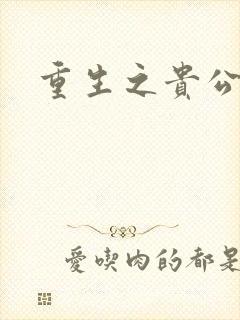 重生之貴公
愛喫肉的都是